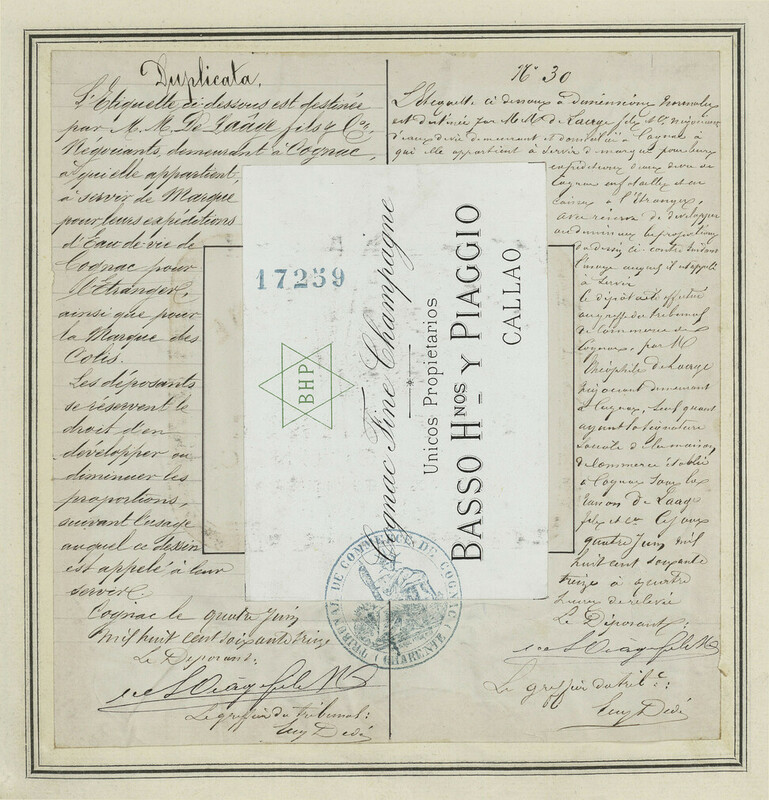 Duplicata.
L'Etiquette ci-dessous est destinée
par M.M. De Laâge fils & Cie,
Négociants, demeurant à Cognac,
à qui elle appartient,
à servir de Marque
pour leurs expéditions
d'Eau de vie de
Cognac pour
l'Etranger,
ainsi que pour
la Marque des
Colis.
Les déposants
se réservent le
droit d'en
développer ou
diminuer les
proportions,
suivant l'usage
auquel ce dessin
est appelé à leur
servir.
Cognac le quatre Juin
mil huit cent soixante treize
Le Déposant:
Le greffier du tribunal:
17259
BHP
Cognac Fine Champagne
Unicos Propietarios
BASSO HNOS Y PIAGGIO
CALLAO
TRIBUNAL DE COMMERCE DE COGNAC
(CHARENTE)
No 30
L'Etiquette ci dessous à dimensions normales
est destinée par MM. de Laage fils et Cie négociants
d'eaux de vie demeurant et domiciliés à Cognac à
qui elle appartient à servir de marque pour leurs
expéditions d'eaux de vie de
Cognac en futailles et en
caisses à l'Etranger,
avec réserve de développer
ou diminuer les proportions
du dessin ci-contre suivant
l'usage auquel il est appelé
à servir
Ce dépôt a été effectué
au greffe du tribunal
de Commerce de
Cognac, par M
Théophile de Laage
négociant demeurant
à Cognac, seul gérant
ayant la signature
sociale de la maison
de Commerce établie
à Cognac sous la
raison de Laage
fils et Cie. Ce jour
quatre Juin mil
huit cent soixante
treize à quatre
heures de relevée
Le Déposant:
Le greffier du tribal: